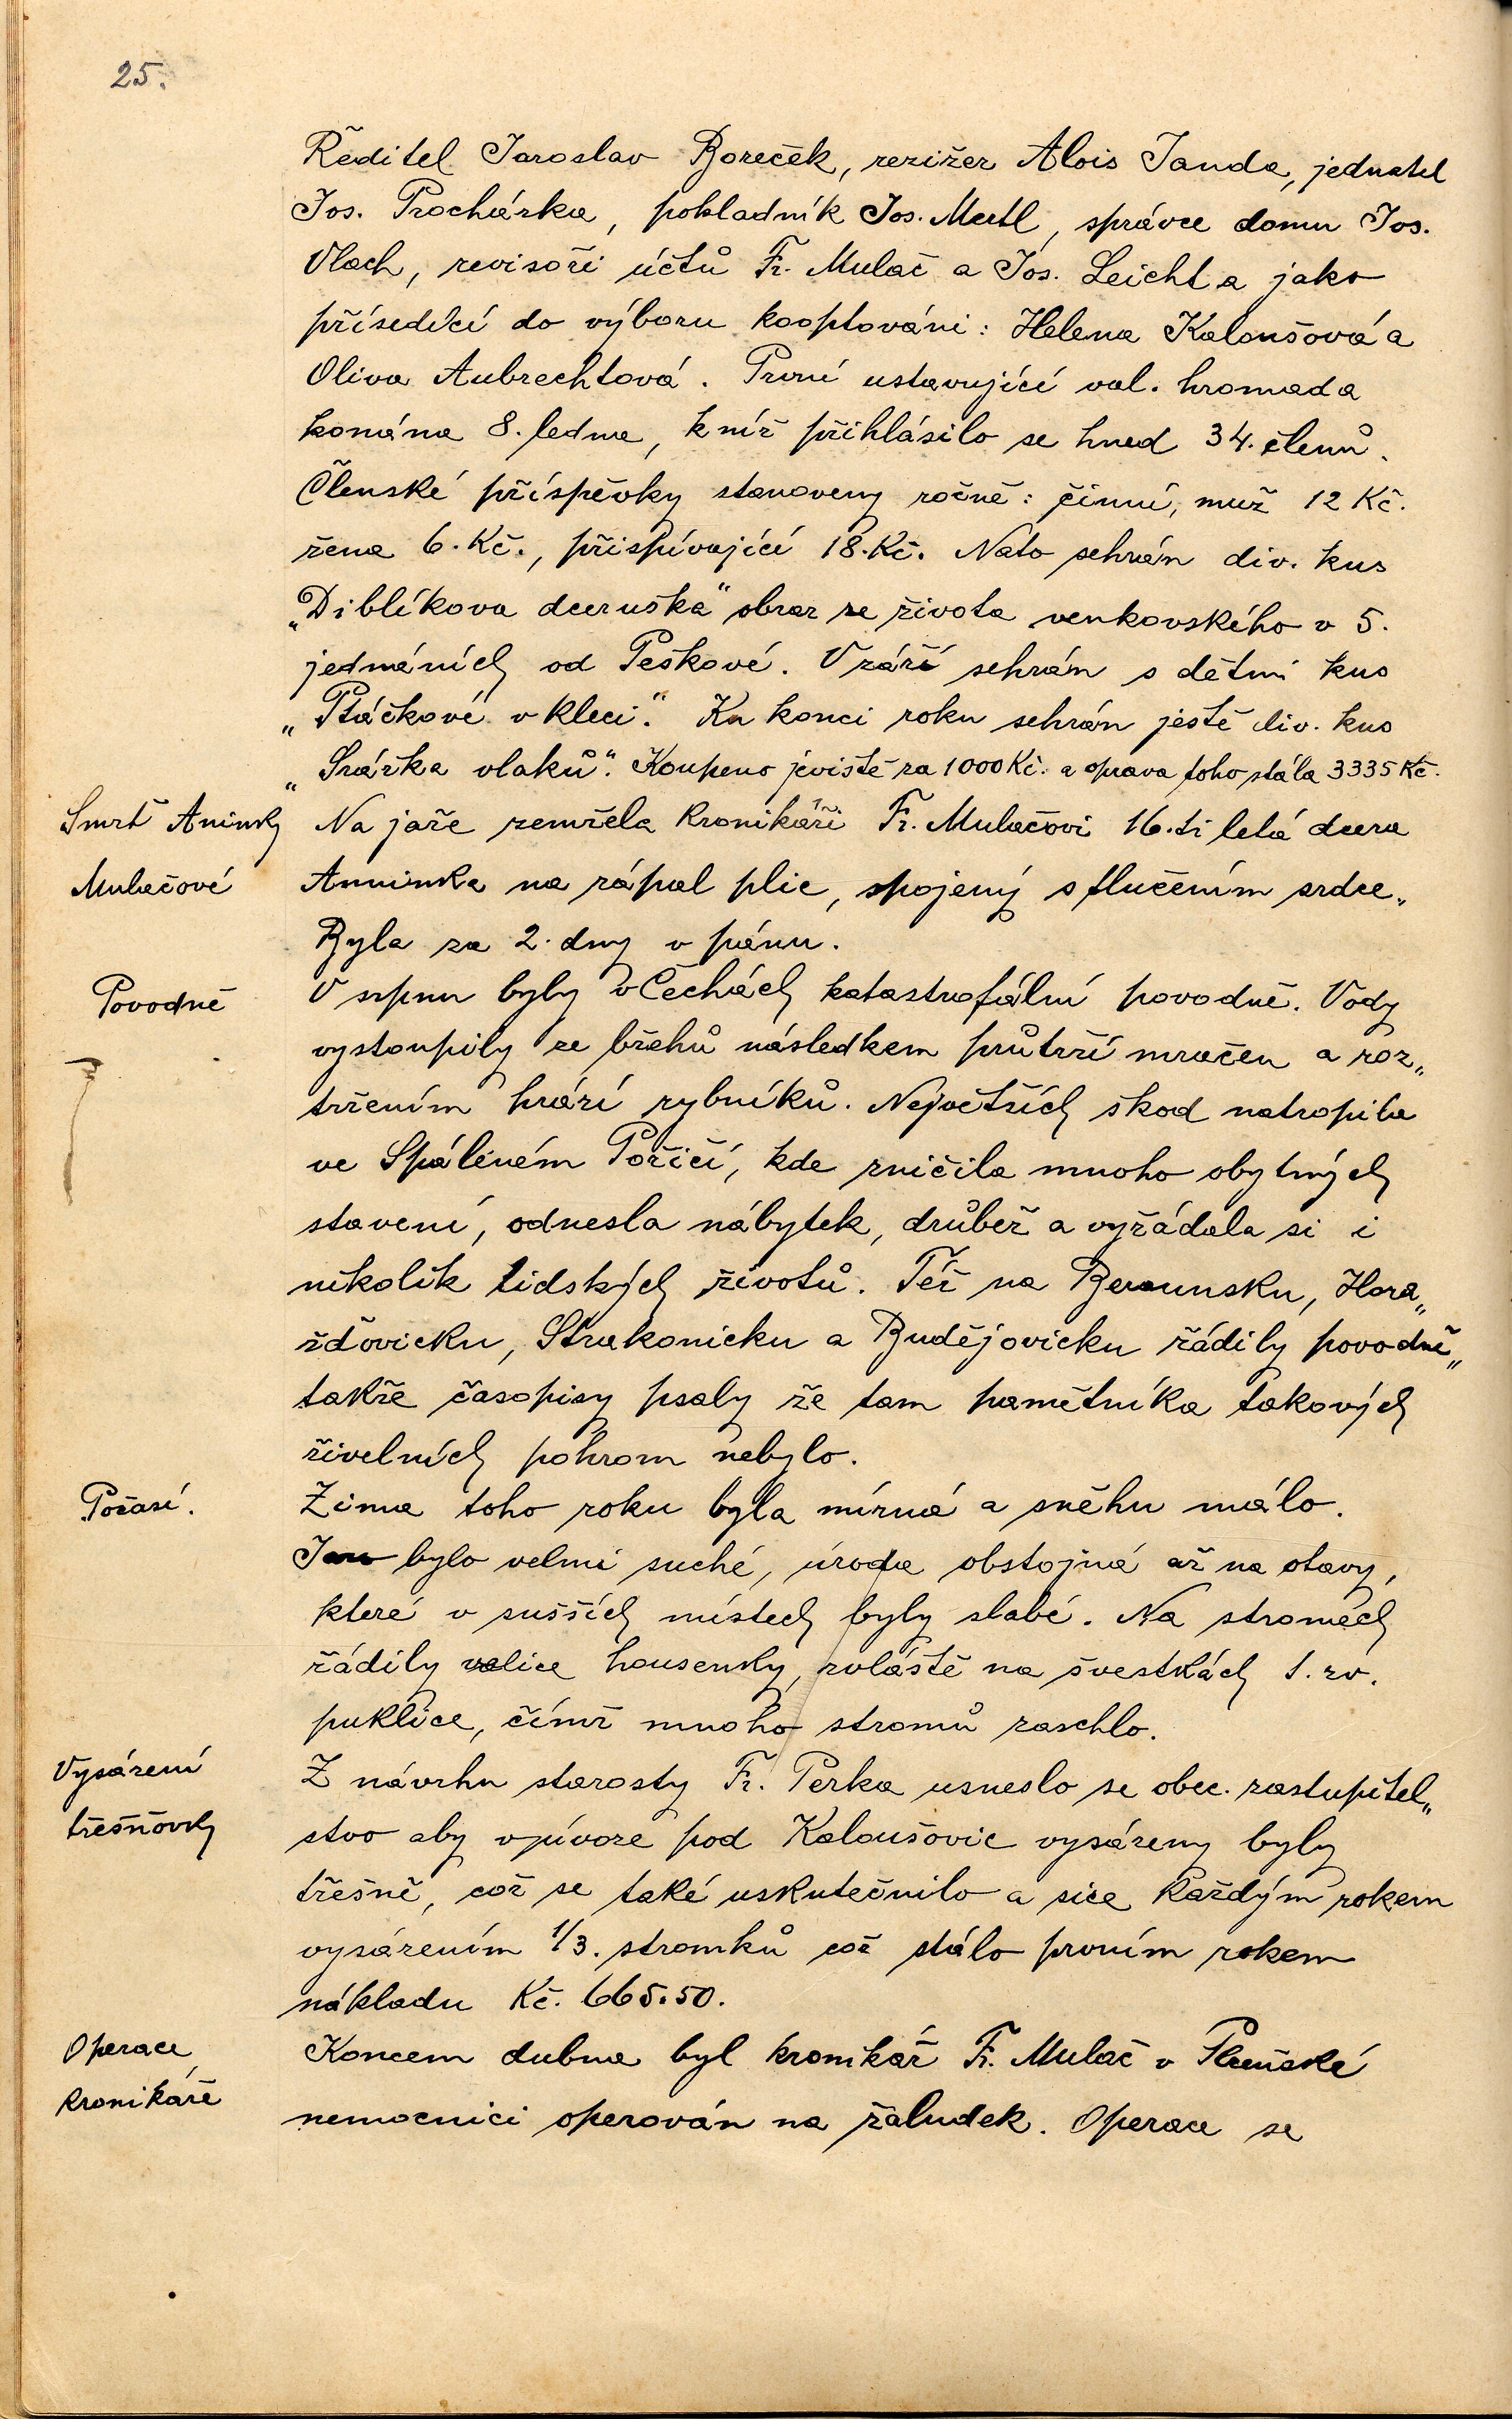 25.
Ředitel Jaroslav Boreček, režižer Alois Janda, jednatel
Jos. Procházka, pokladník Jos. Mertl, správce domu Jos.
Vlach, revisoři účtů Fr. Mulač a Jos. Leicht a jako
přísedící do výboru kooptováni: Helena Kaloušová a
Oliva Aubrechtová. První ustavující val. hromada
konána 8. ledna, k níž přihlásilo se hned 34. členů.
Členské příspěvky stanoveny ročně: činní, muž 12 Kč.
žena 6. Kč., přispívající 18. Kč. Nato sehrán div. kus
„Diblíkova dceruška" obraz ze života venkovského v 5.
jednáních od Peškové. V září sehrán s dětmi kus
„Ptáčkové v kleci". Ku konci roku sehrán ještě div. kus
„Srážka vlaků". Koupeno jeviště za 1000 Kč. a oprava toho stála 3335 Kč.
Smrť Aninky
Mulačové
Na jaře zemřela kronikáři Fr. Mulačovi 16.ti letá dcera
Anninka na zápal plic, spojený s tlučením srdce„
Byla za 2. dny v pánu.
Povodně
V srpnu byly v Čechách katastrofální povodně. Vody
vystoupily ze břehů následkem průtrží mračen a roz„
tržením hrází rybníků. Největších škod natropila
ve Spáleném Poříčí, kde zničila mnoho obytných
stavení, odnesla nábytek, drůbež a vyžádala si i
několik lidských životů. Též na Berounsku, Hora„
žďovicku, Strakonicku a Budějovicku řádily povodně„
takže časopisy psaly že tam pamětníka takových
živelních pohrom nebylo.
Počasí.
Zima toho roku byla mírná a sněhu málo.
Jaro bylo velmi suché, úroda obstojná až na otavy,
které v sušších místech byly slabé. Na stromech
řádily velice housenky, zvláště na švestkách t. zv.
puklice, čímž mnoho stromů zaschlo.
Vysázení
třešňovky
Z návrhu starosty Fr. Perka usneslo se obec. zastupitel„
stvo aby v pívoze pod Kaloušovic vysázeny byly
třešně, což se také uskutečnilo a sice každým rokem
vysázením 1/3. stromků což stálo prvním rokem
nákladu Kč. 665.50.
Operace
kronikáře
Koncem dubna byl kronikář Fr. Mulač v Plzeňské
nemocnici operován na žaludek. Operace se